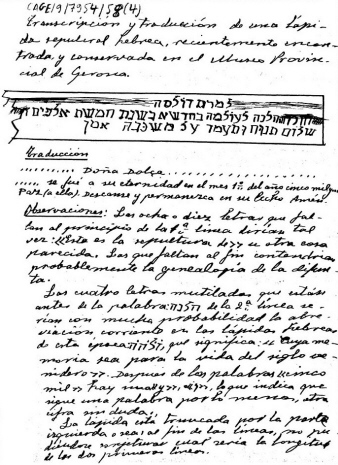 CAGE/9/7954/58(4)
Transcripción y traducción de una lápi-
da sepulcral hebrea, recientemente encon-
trada, y conservada en el Museo Provin-
cial de Gerona.
למרת דולסה
הלכה לעולמה בחדש א בשנת חמשת אלפים
שלום תנוח ותעמד על משכבה אמן
Traducción
.......... Doña Dolça..........
...... se fué a su eternidad en el mes 1º del año cinco mil
Paz (a ella). Descanse y permanezca en su lecho Amén.
Observaciones: Las ocho o diez letras que fal-
tan al principio de la 1ª línea dirían tal
vez: "Esta es la sepultura de" u otra cosa
parecida. Las que faltan al fin contendrían
probablemente la genealogía de la difun-
ta.
Las cuatro letras mutiladas que están
antes de la palabra: הלכה de la 2ª línea se-
rían con mucha probabilidad la abre-
viación corriente en las lápidas hebreas
de esta época, que significa: "Cuya me-
moria sea para la vida del siglo ve-
nidero". Después de las palabras "cinco
mil" hay una, lo que indica que
sigue una palabra por lo menos, otra
cifra sin duda.
La lápida está truncada por la parte
izquierda o sea: al fin de las líneas, no pu-
diéndose conjeturar cual sería la longitud
de las dos primeras líneas.